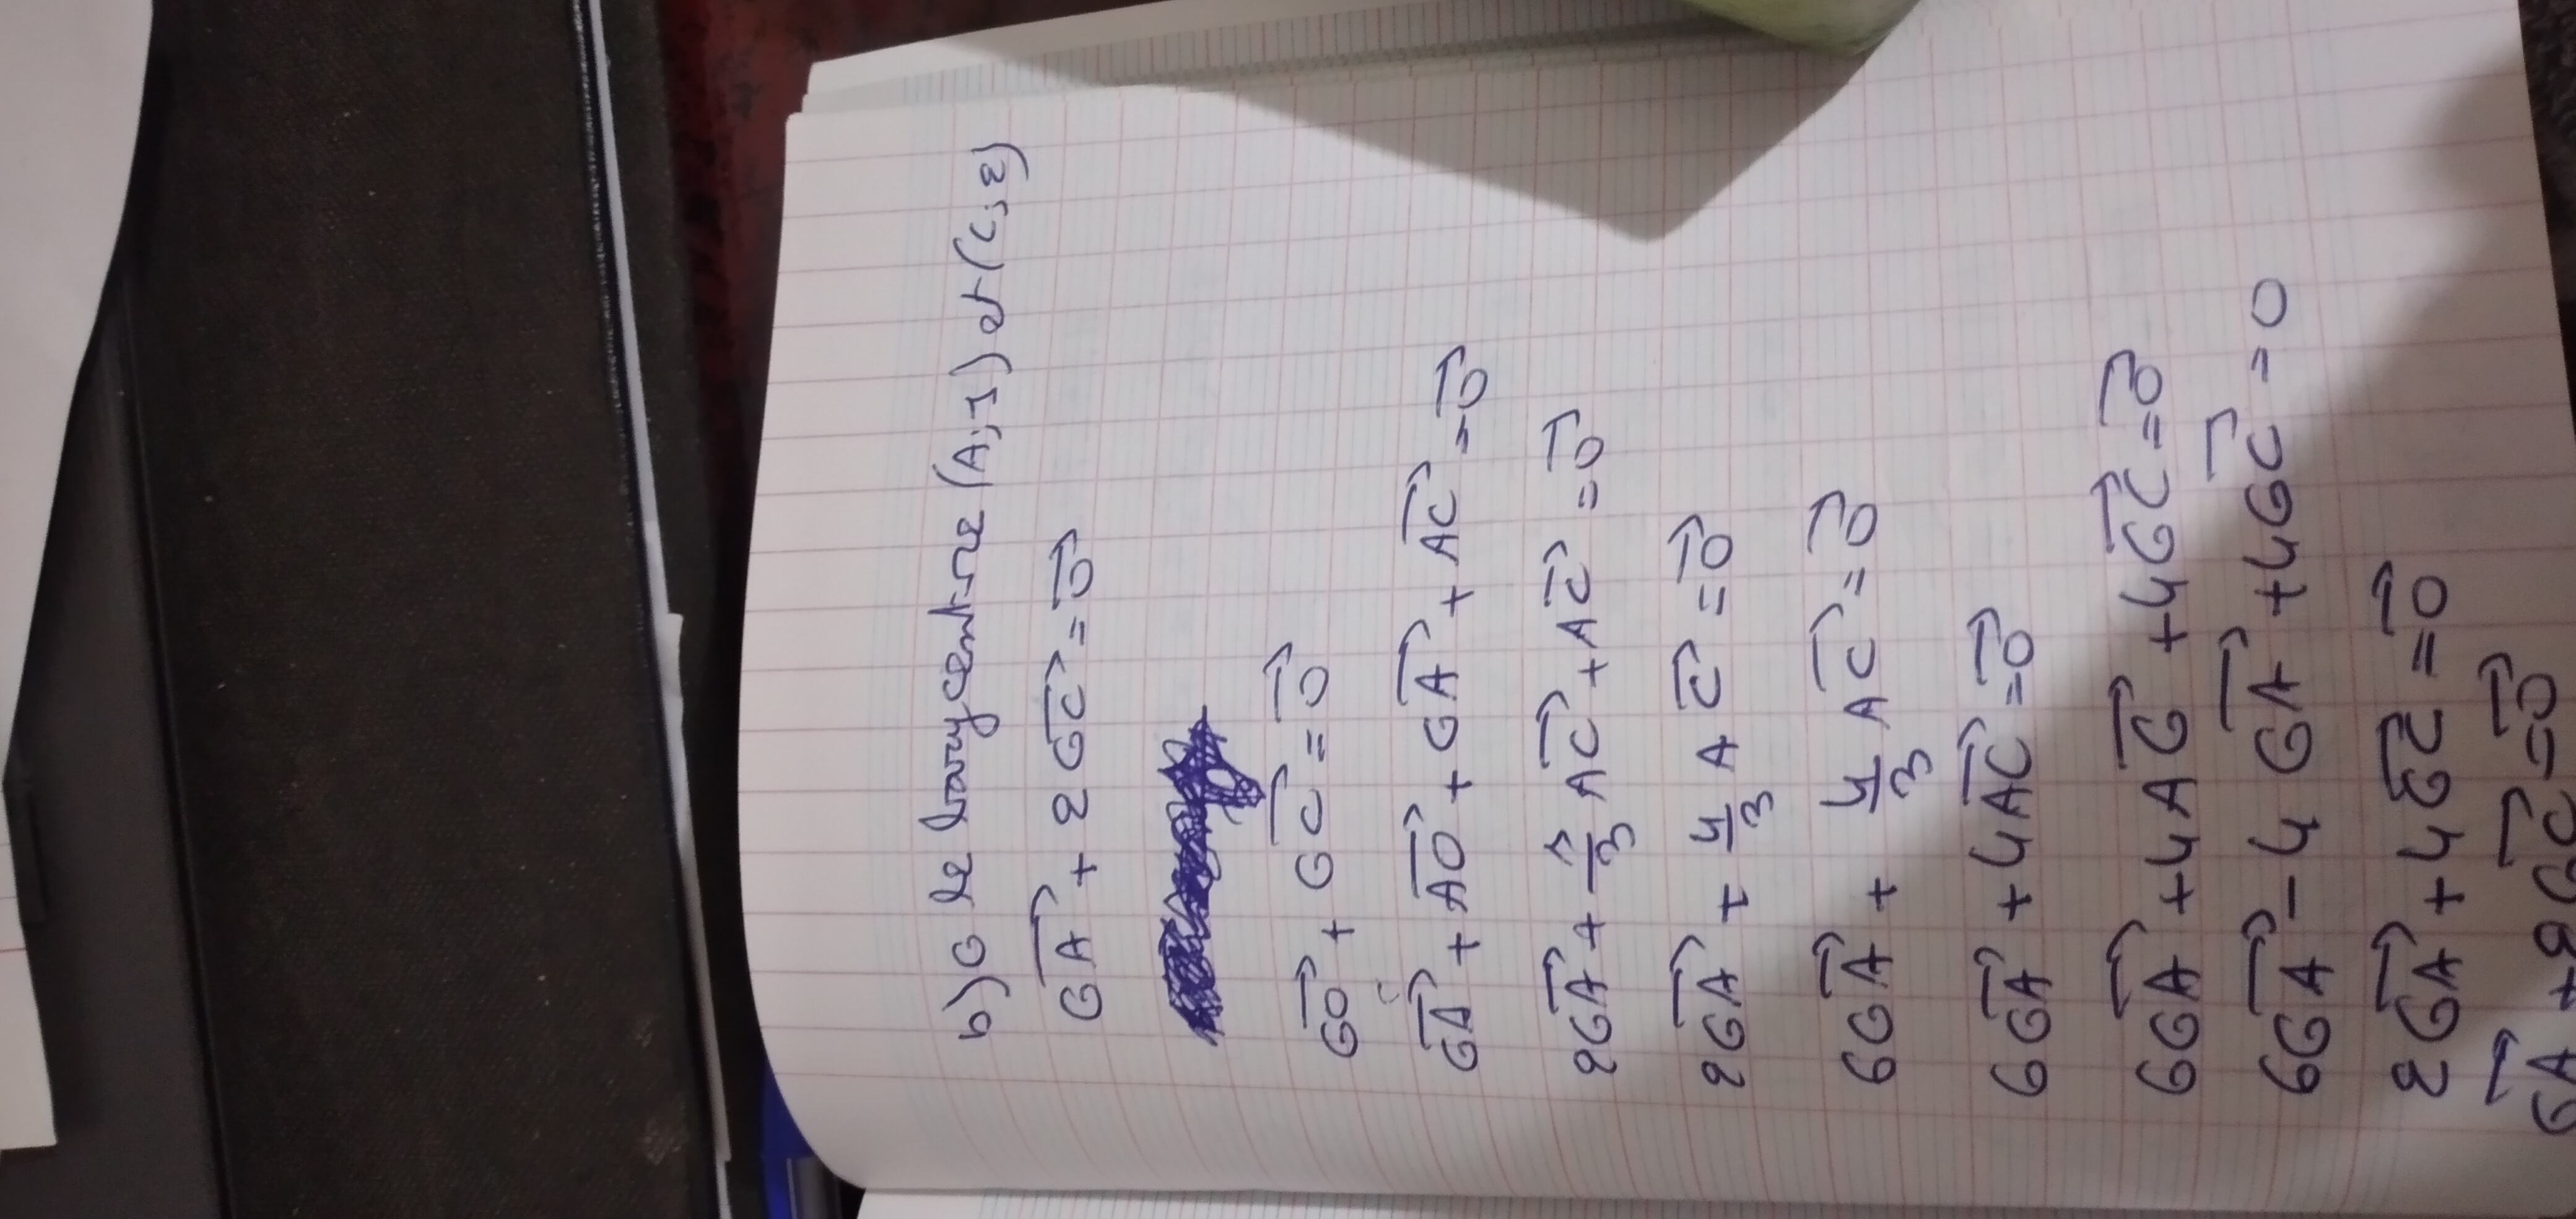 b) G le barycentre (A; 1) et (C; 2)
GA + 2GC = 0
GO + GC = 0
GA + AO + GA + AC = 0
2GA + 1/3 AC + AC = 0
2GA + 4/3 AC = 0
6GA + 4/3 AC = 0
6GA + 4AC = 0
6GA + 4AG + 4GC = 0
6GA - 4GA + 4GC = 0
2GA + 4GC = 0
GA + 2GC = 0